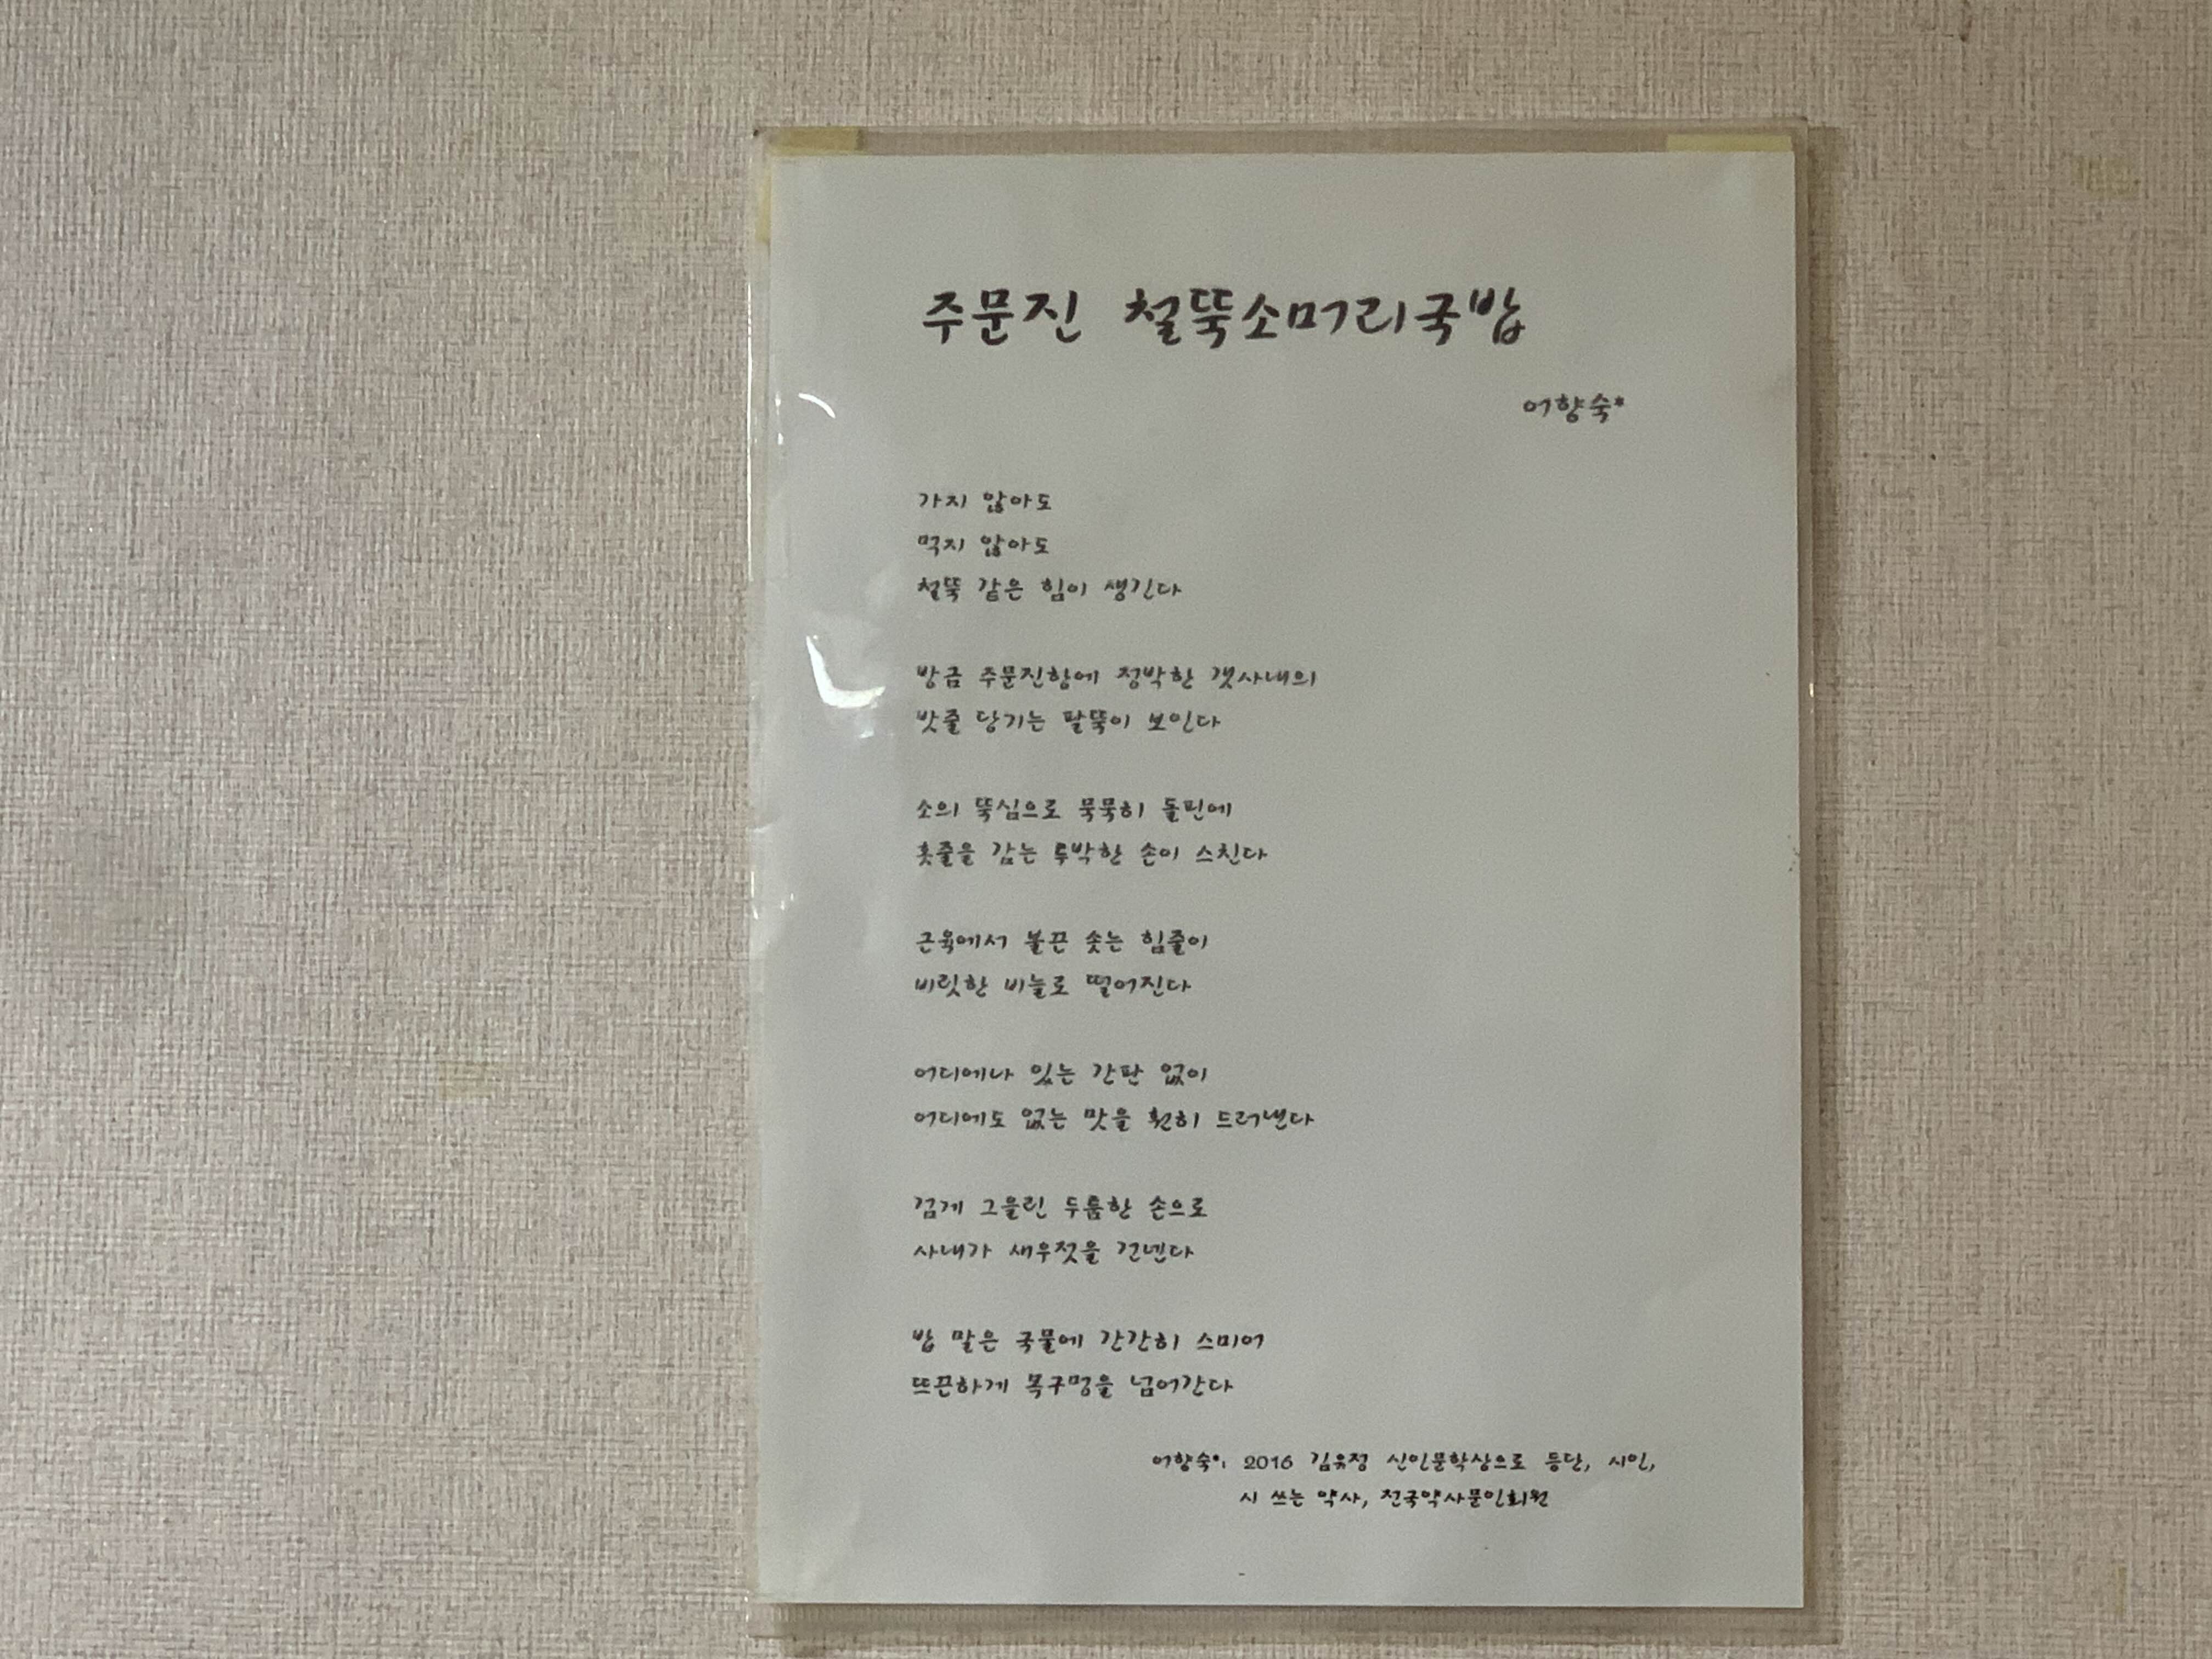 주문진 철뚝소머리국밥
어향숙*
가지 않아도
먹지 않아도
철뚝 같은 힘이 생긴다
방금 주문진항에 정박한 갯사내의
밧줄 당기는 팔뚝이 보인다
소의 뚝심으로 묵묵히 돌핀에
홋줄을 감는 투박한 손이 스친다
근육에서 불끈 솟는 힘줄이
비릿한 비늘로 떨어진다
어디에나 있는 간판 없이
어디에도 없는 맛을 훤히 드러낸다
검게 그을린 두툼한 손으로
사내가 새우젓을 건넨다
밥 말은 국물에 간간히 스미어
뜨끈하게 목구멍을 넘어간다
어향숙*: 2016 김유정 신인문학상으로 등단, 시인,
시 쓰는 약사, 전국약사문인회원